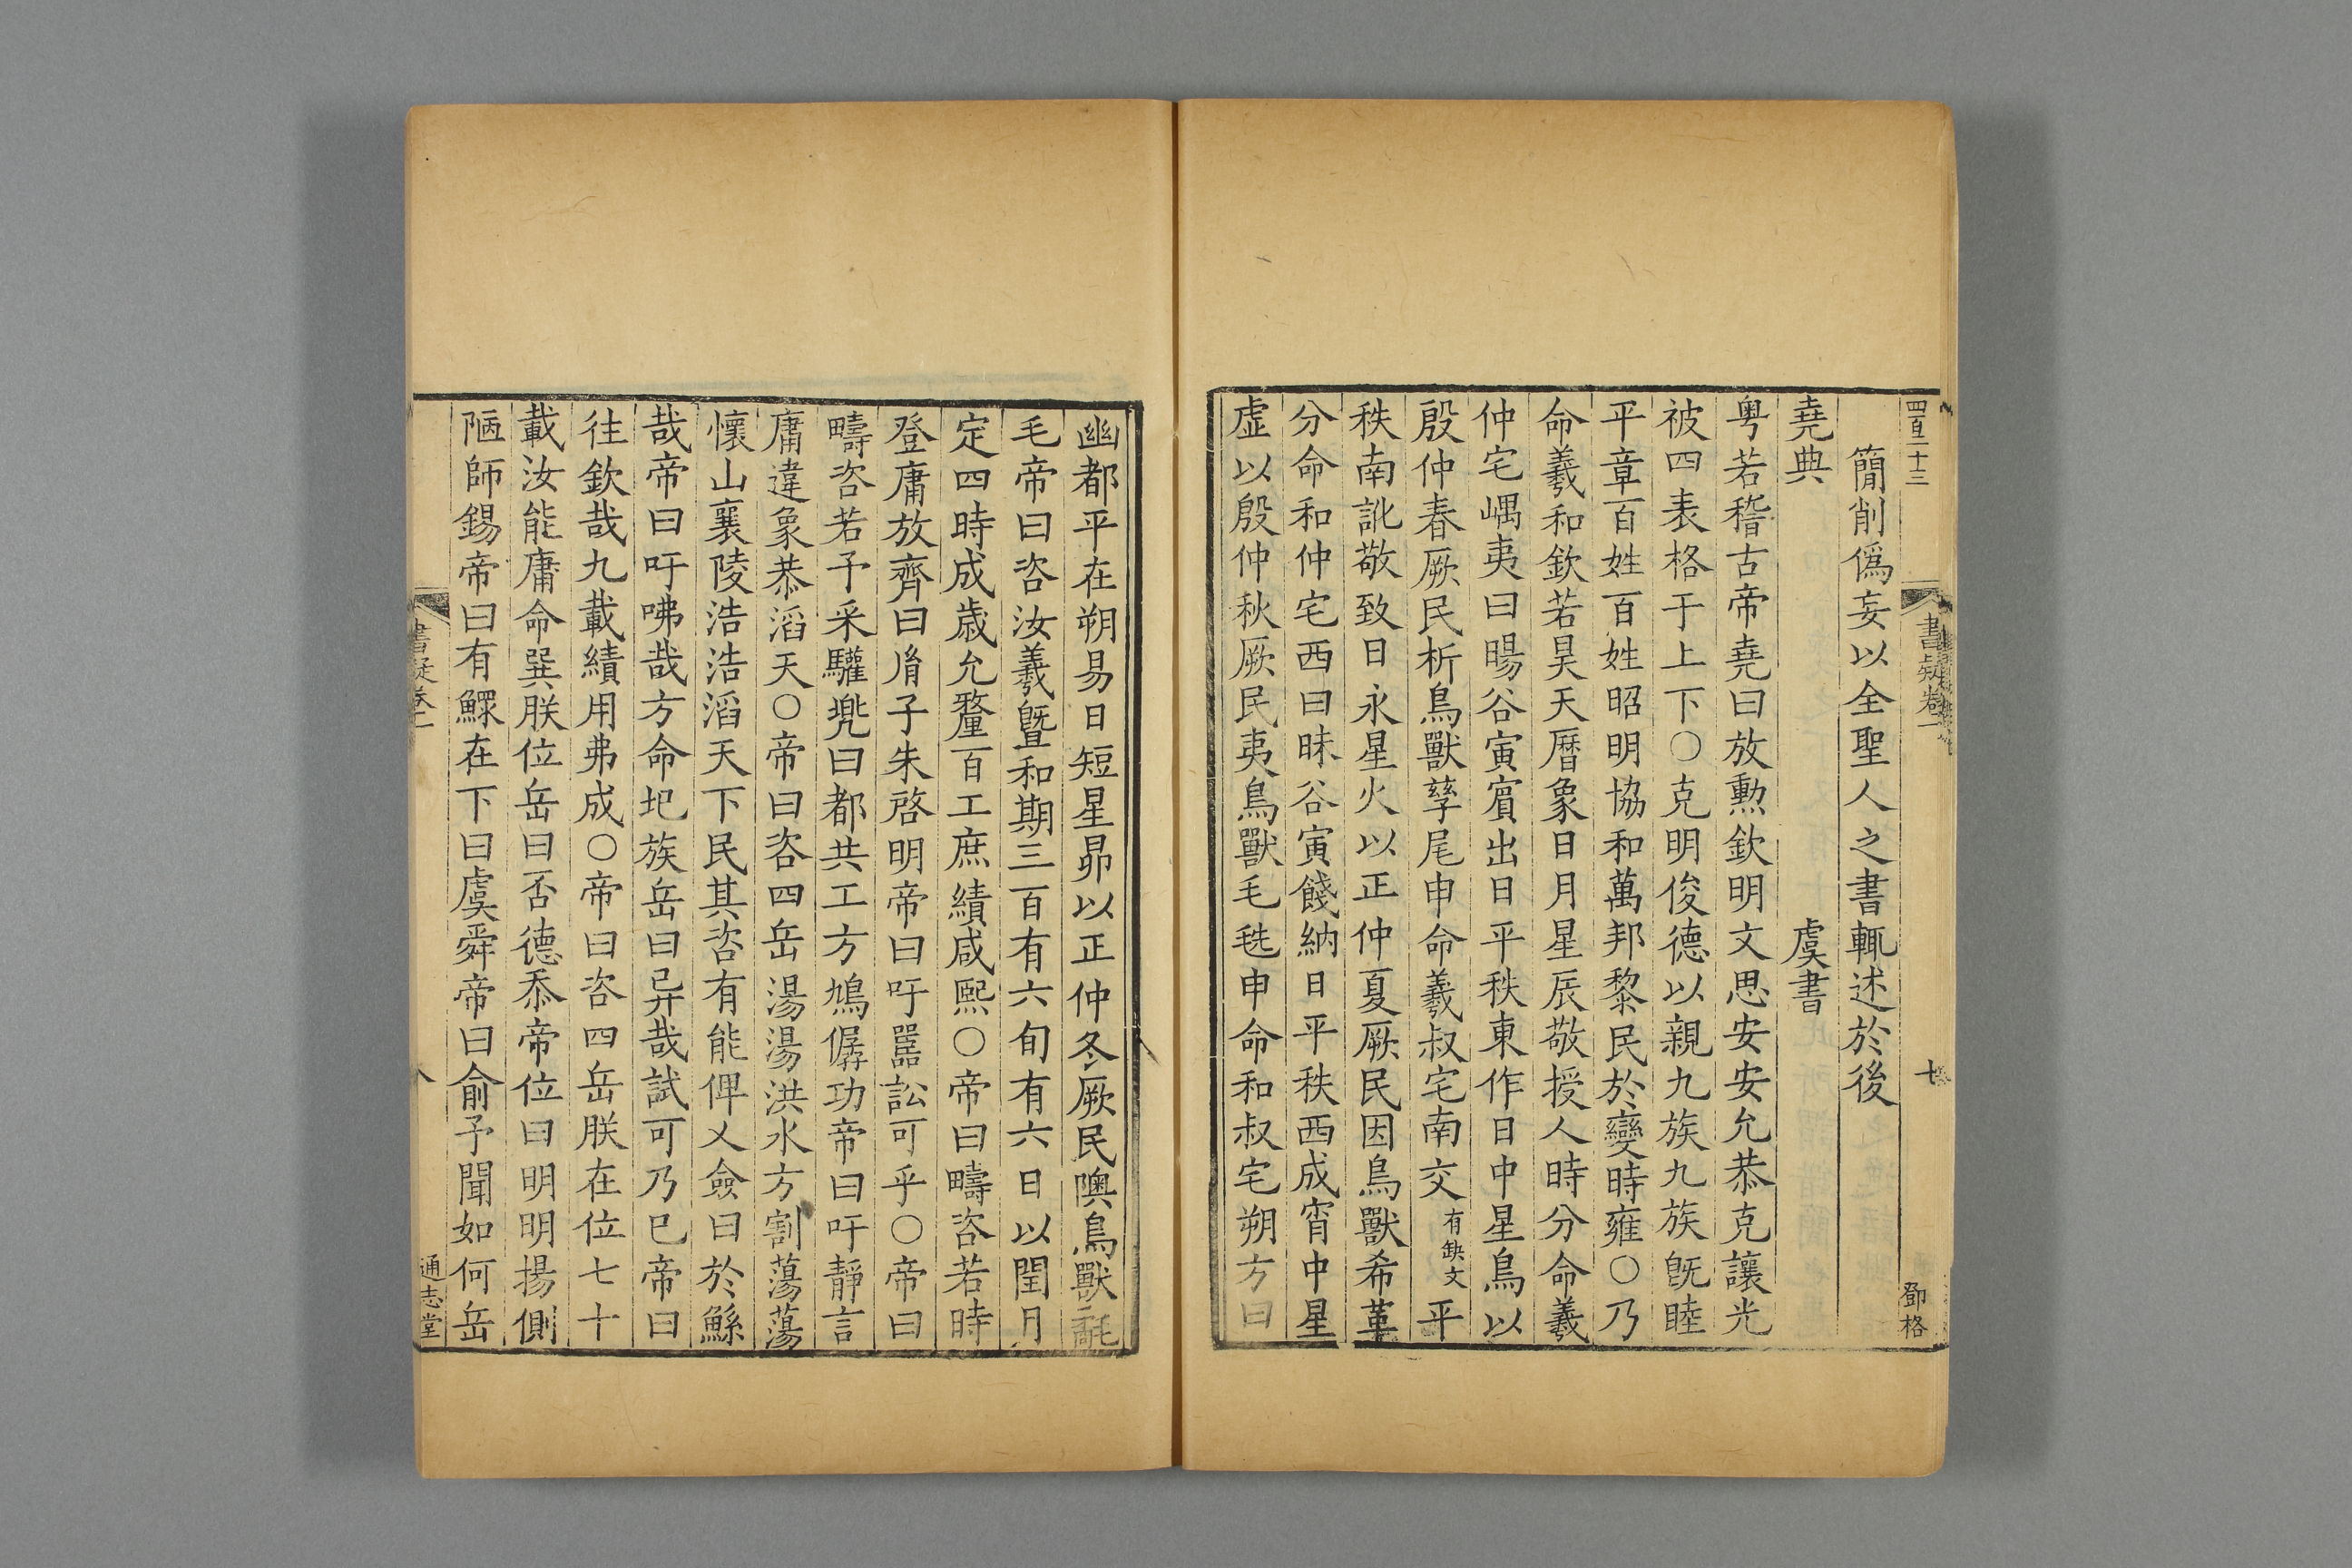 四百二十三
書疑卷一
七
鄧格
簡削僞妄以全聖人之書輒述於後
堯典 虞書
粤若稽古帝堯曰放勲欽明文思安安允恭克讓光
被四表格于上下○克明俊德以親九族九族旣睦
平章百姓百姓昭明協和萬邦黎民於變時雍○乃
命羲和欽若昊天曆象日月星辰敬授人時分命羲
仲宅嵎夷曰暘谷寅賓出日平秩東作日中星鳥以
殷仲春厥民析鳥獸孳尾申命羲叔宅南交有缺文平
秩南訛敬致日永星火以正仲夏厥民因鳥獸希革
分命和仲宅西曰昧谷寅餞納日平秩西成宵中星
虛以殷仲秋厥民夷鳥獸毛毨申命和叔宅朔方曰
幽都平在朔易日短星昴以正仲冬厥民隩鳥獸氄
毛帝曰咨汝羲曁和期三百有六旬有六日以閏月
定四時成歲允釐百工庶績咸熙○帝曰疇咨若時
登庸放齊曰胤子朱啓明帝曰吁嚚訟可乎○帝曰
疇咨若予采驩兜曰都共工方鳩僝功帝曰吁靜言
庸違象恭滔天○帝曰咨四岳湯湯洪水方割蕩蕩
懷山襄陵浩浩滔天下民其咨有能俾乂僉曰於鯀
哉帝曰吁咈哉方命圯族岳曰异哉試可乃已帝曰
往欽哉九載績用弗成○帝曰咨四岳朕在位七十
載汝能庸命巽朕位岳曰否德忝帝位曰明明揚側
陋師錫帝曰有鰥在下曰虞舜帝曰俞予聞如何岳
書疑卷一
八
通志堂